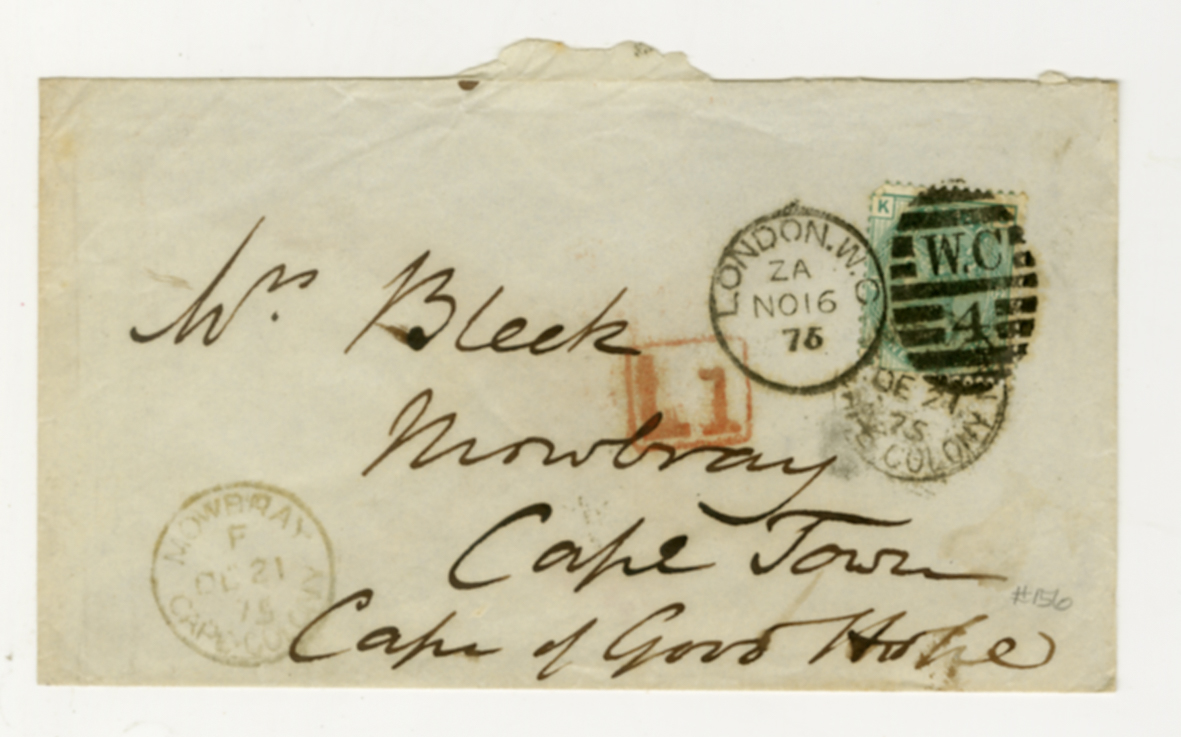 K
LONDON.W.C
ZA
NO16
75
W.C
4
Mrs Bleek
L1
DE 21
75
COLONY
Mowbray
MOWBRAY
F
DE 21
75
Cape Town
#156
Cape of Good Hope